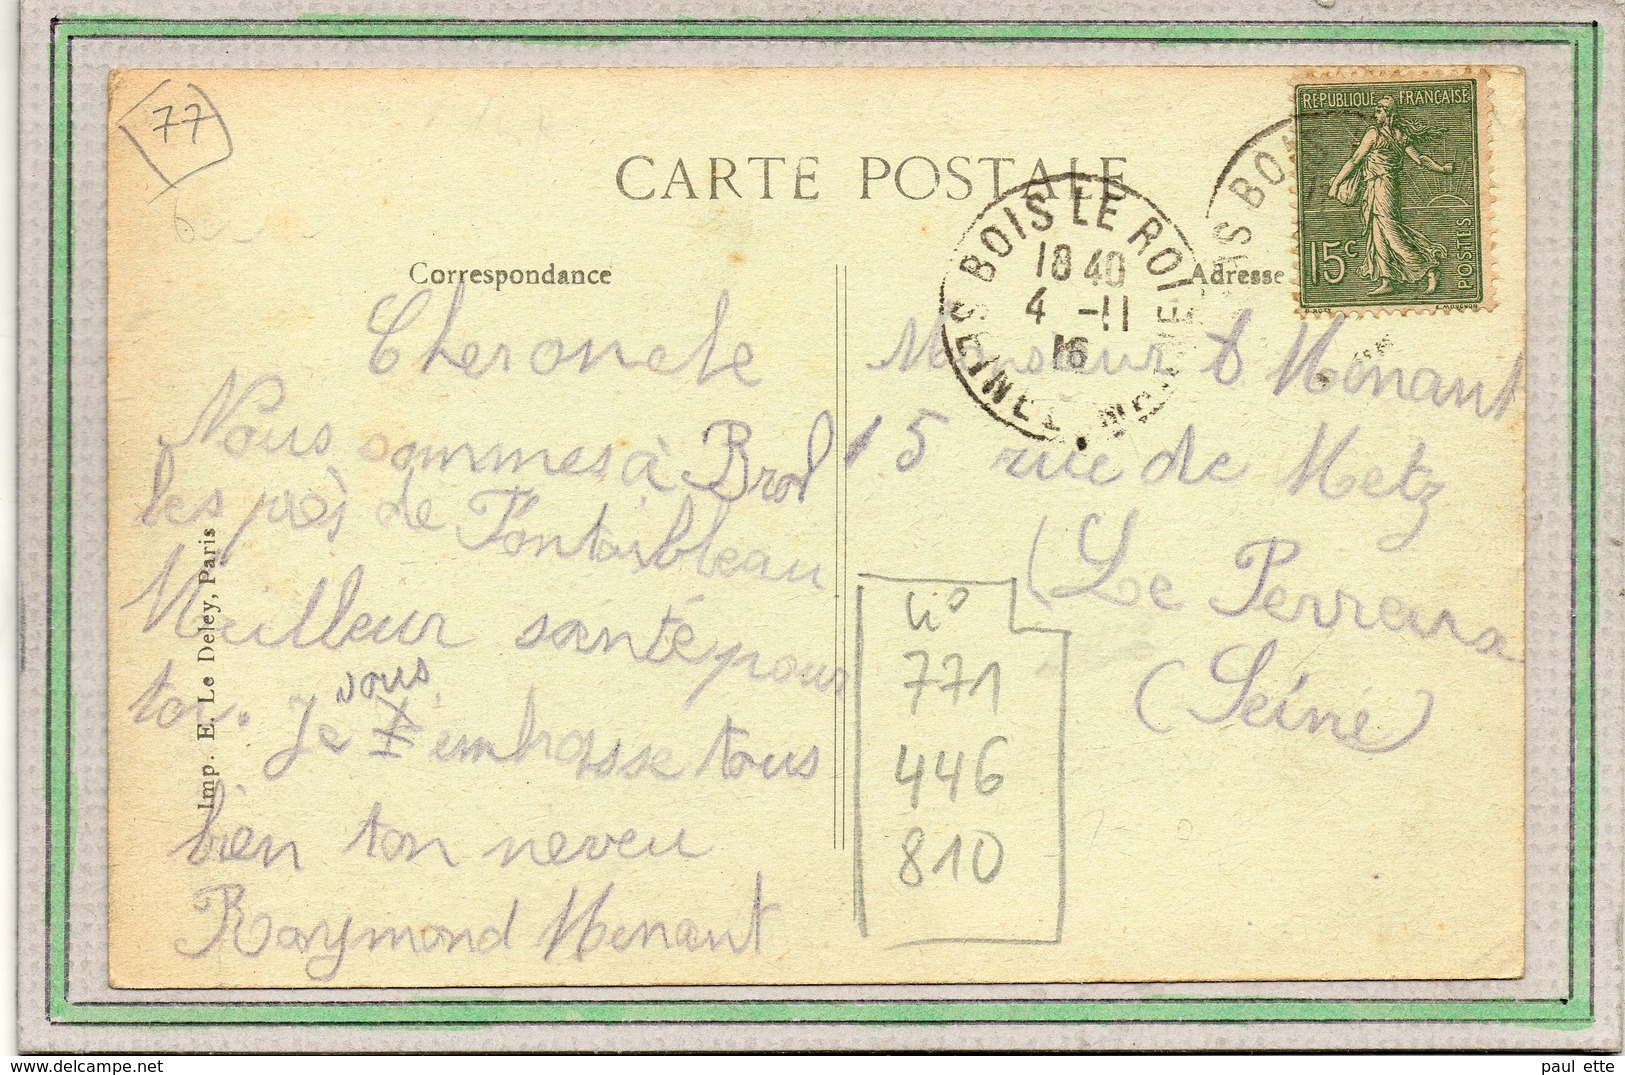 77
CARTE POSTALE
RÉPUBLIQUE FRANÇAISE
15c
POSTES
BOIS LE ROI
18 40
4 -11
16
SEINE-ET-MARNE
Correspondance
Adresse
Cher oncle
Nous sommes à Brol
les près de Fontaibleau
Meilleur santé pour
toi. Je vous embrasse tous
bien ton neveu
Raymond Menant
Monsieur Menant
15 rue de Metz
(Le Perreux
(Seine)
n°
771
446
810
Imp. E. Le Deley, Paris
paul ette